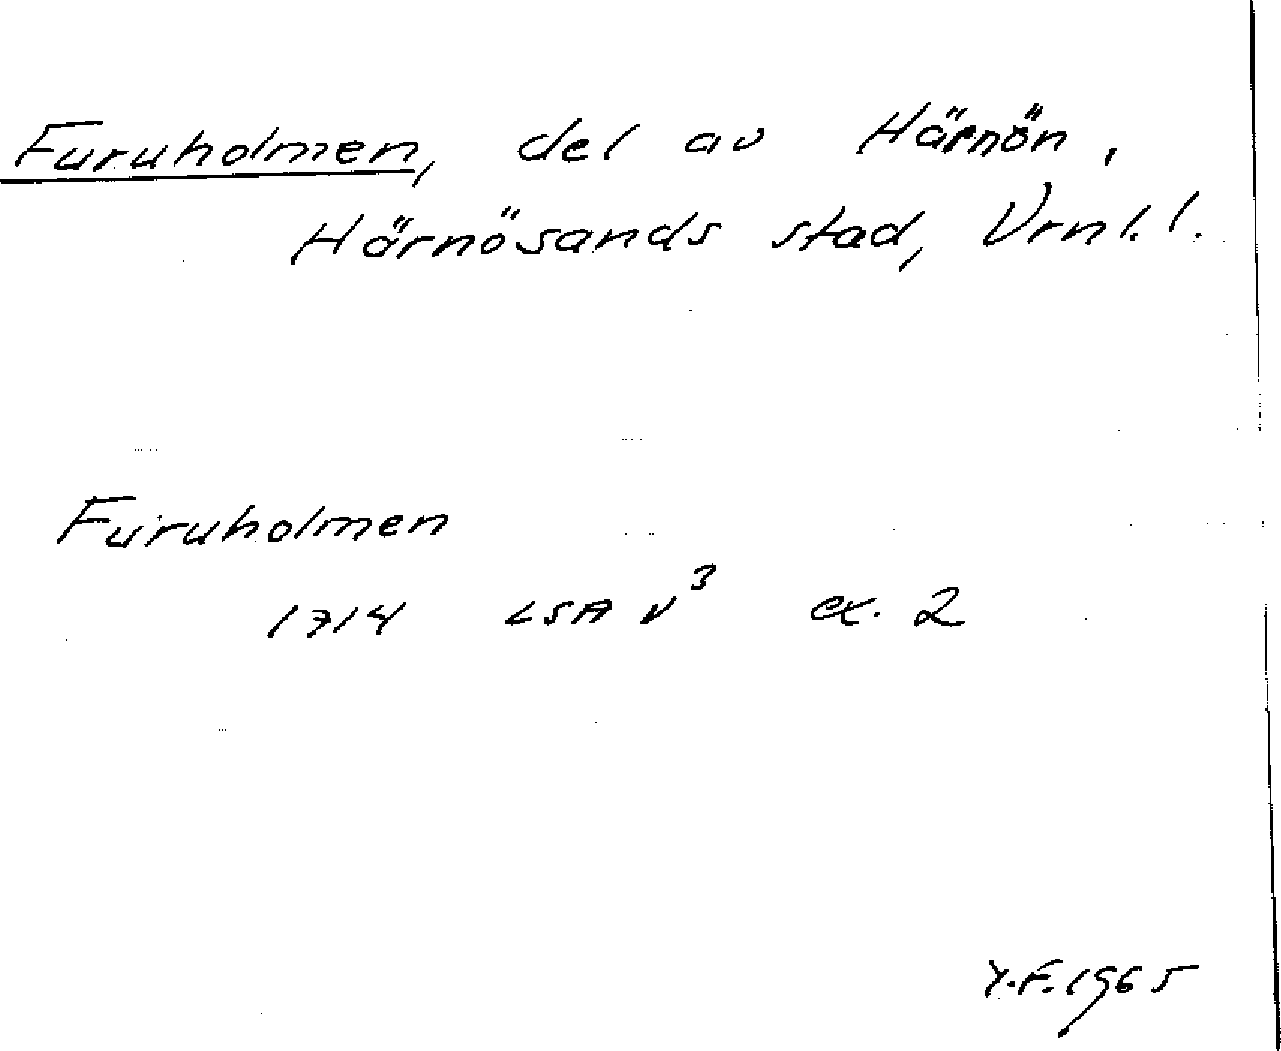 Furuholmen, del av Härnön,
Härnösands stad, Vrnl.l.
Furuholmen
1714 LSA v³ ex. 2
Y.F. 1965